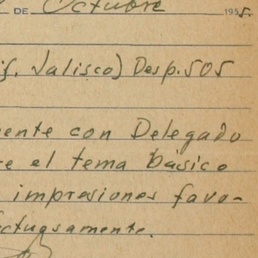 DE Octubre 1955.
if. Jalisco) Desp. 505
ente con Delegado
re el tema básico
impresiones favo-
ctuosamente.